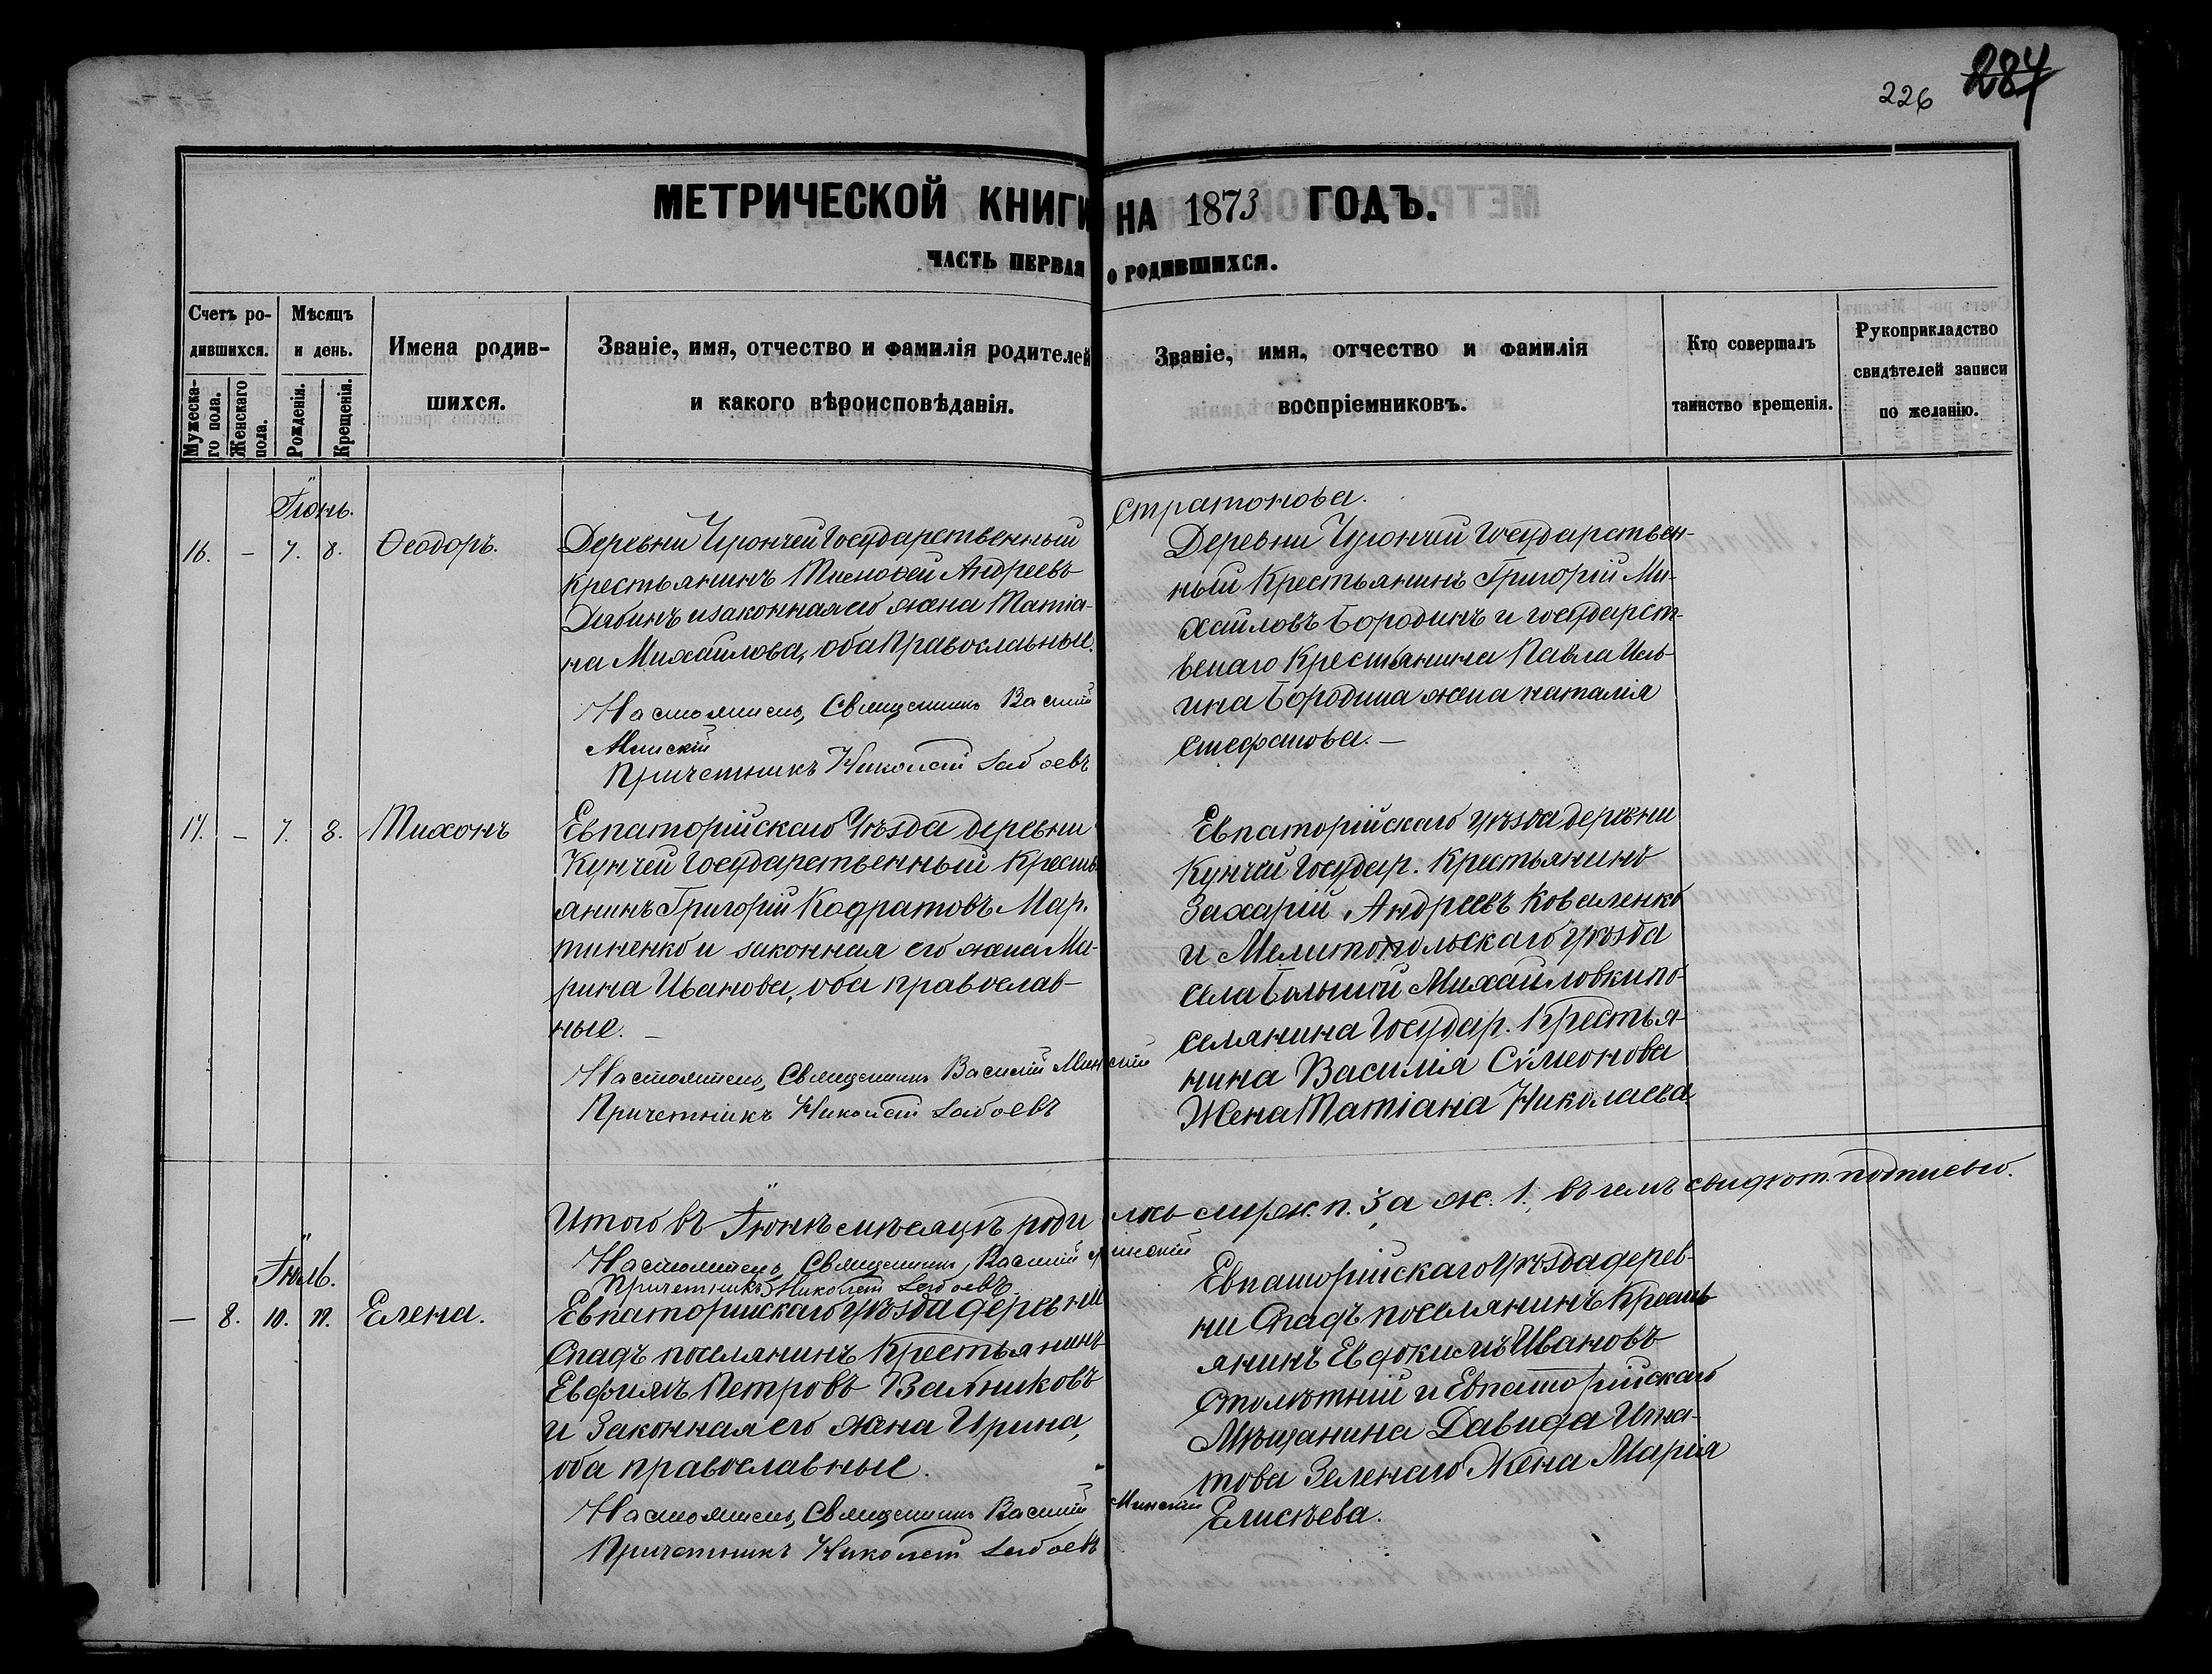 226 284
МЕТРИЧЕСКОЙ КНИГИ НА 1873 ГОДЪ.
ЧАСТЬ ПЕРВАЯ О РОДИВШИХСЯ.
Счетъ ро-
дившихся.
Мужеска-
го пола.
Женскаго
пола.
Мѣсяцъ
и день.
Рожденія.
Крещенія.
Имена родив-
шихся.
Званіе, имя, отчество и фамилія родителей
и какого вѣроисповѣданія.
Званіе, имя, отчество и фамилія
воспріемниковъ.
Кто совершалъ
таинство крещенія.
Рукоприкладство
свидѣтелей записи
по желанію.
Стратонова.
Іюнь.
16. – 7. 8. Ѳеодоръ.
Деревни Чурончей Государственный
крестьянинъ Тимоѳей Андреевъ
и законная его жена Татіа-
на Михайлова, оба Православные.
Настоятель, Священникъ Василій
Минскій
Причетникъ Николай
Деревни Чурончей Государствен-
ный Крестьянинъ Григорій Ми-
хайловъ Бородинъ и государст-
венаго Крестьянина Павла Иль-
ина Бородина жена Наталія
Стефанова. –
17. – 7. 8. Тихонъ
Евпаторійскаго Уѣзда деревни
Кунчей Государственный Кресть-
янинъ Григорій Кодратовъ Мар-
тиненко и законная его жена Ма-
рина Иванова, оба православ-
ные. –
Настоятель, Священникъ Василій Минскій
Причетникъ Николай
Евпаторійскаго уѣзда деревни
Кунчей Государ. Крестьянинъ
Захарій Андреевъ Коваленко
и Мелитопольскаго уѣзда
села Большой Михайловки по-
селянина Государ. Крестья-
нина Василія Сѵмеонова
Жена Татіана Николаева.
Итого въ Іюнѣ мѣсяцѣ родилось муж. п. 3 а ж. 1, въ чемъ свидѣт. подписью.
Настоятель, Священникъ, Василій Минскій
Причетникъ Николай
Іюль.
– 8. 10. 11. Елена.
Евпаторійскаго уѣзда деревни
Спадъ поселянинъ Крестьянинъ
Евфимъ Петровъ
и законная его жена Ирина,
оба православные.
Настоятель, Священникъ Василій Минскій
Причетникъ Николай
Евпаторійскаго уѣзда дерев-
ни Спадъ поселянинъ Кресть-
янинъ Евдокимъ Ивановъ
Столѣтній и Евпаторійскаго
Мѣщанина Давида Игна-
това Зеленаго Жена Марія
Елисѣева.